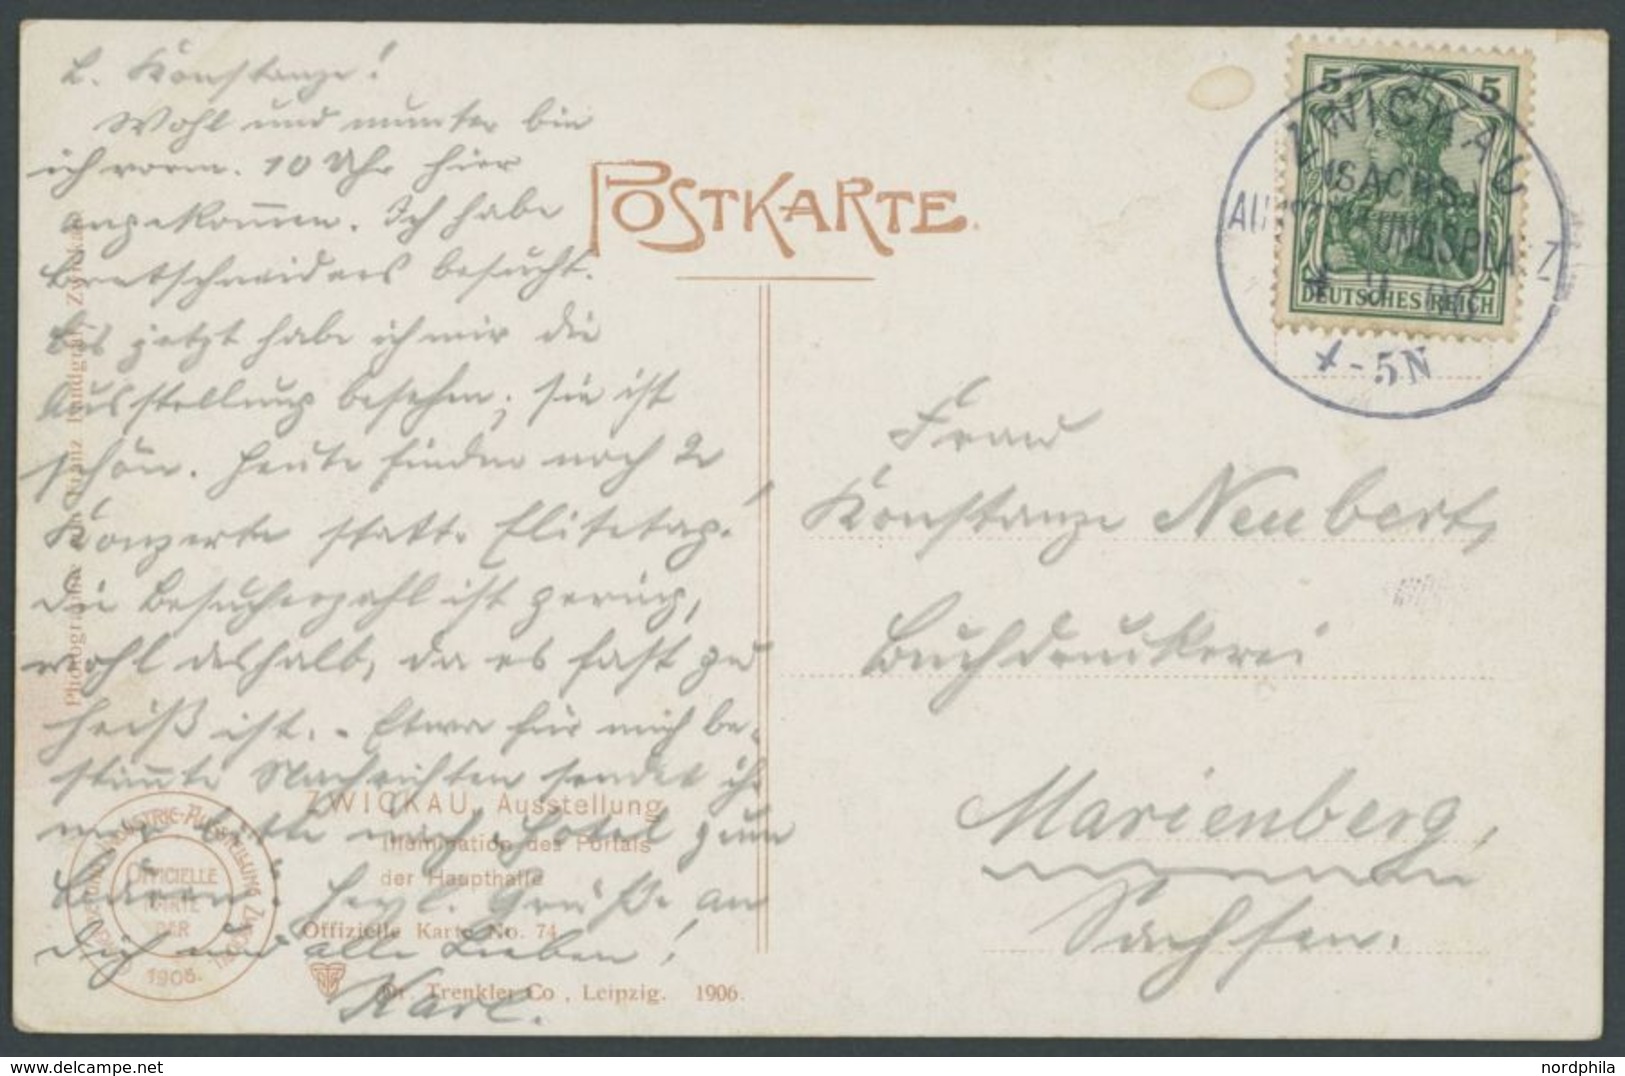 L. Konstanze!
Wohl und munter bin
ich vorm. 10 Uhr hier
angekom̅en. Ich habe
Bretschneiders besucht.
Bis jetzt habe ich mir die
Ausstellung besehen; sie ist
schön. Heute finden noch 2
Konzerte statt.
Die Besucherzahl ist gering,
wohl deshalb, da es fast zu
heiß ist. - Etwa für mich be-
stim̅te Nachrichten sendet ih-
mir bitte nach „Hotel zum
Bären". Herzl. Grüße an
Dich und alle Lieben!
Karl.
Zwickau
ZWICKAU, Ausstellung
Illumination des Portals
der Haupthalle
Offizielle Karte No. 74
Dr. Trenkler Co., Leipzig. 1906.
INDUSTRIE-AUSSTELLUNG ZWICKAU
OFFICIELLE
KARTE
DER
1906.
POSTKARTE.
5 5
DEUTSCHES REICH
ZWICKAU
SÄCHS.
AUSSTELLUNGSPLATZ
4-5N
Frau
Konstanze Neubert,
Buchdruckerei
Marienberg,
Sachsen.
nordphila